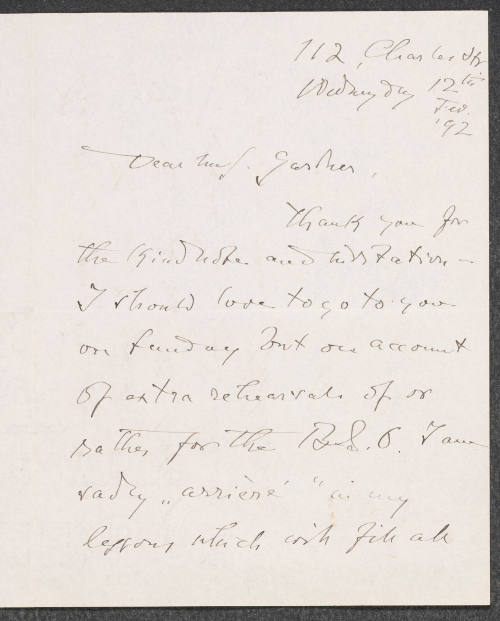 112, Charles Str
Wednesday 12th
Feb.
'92
Dear Mrs. Gardner,
Thank you for
the kind note and invitation –
I should love to go to you
on Sunday but on account
of extra rehearsals of or
rather for the B.S.O. I am
sadly „arriéré" in my
lessons which will fill all